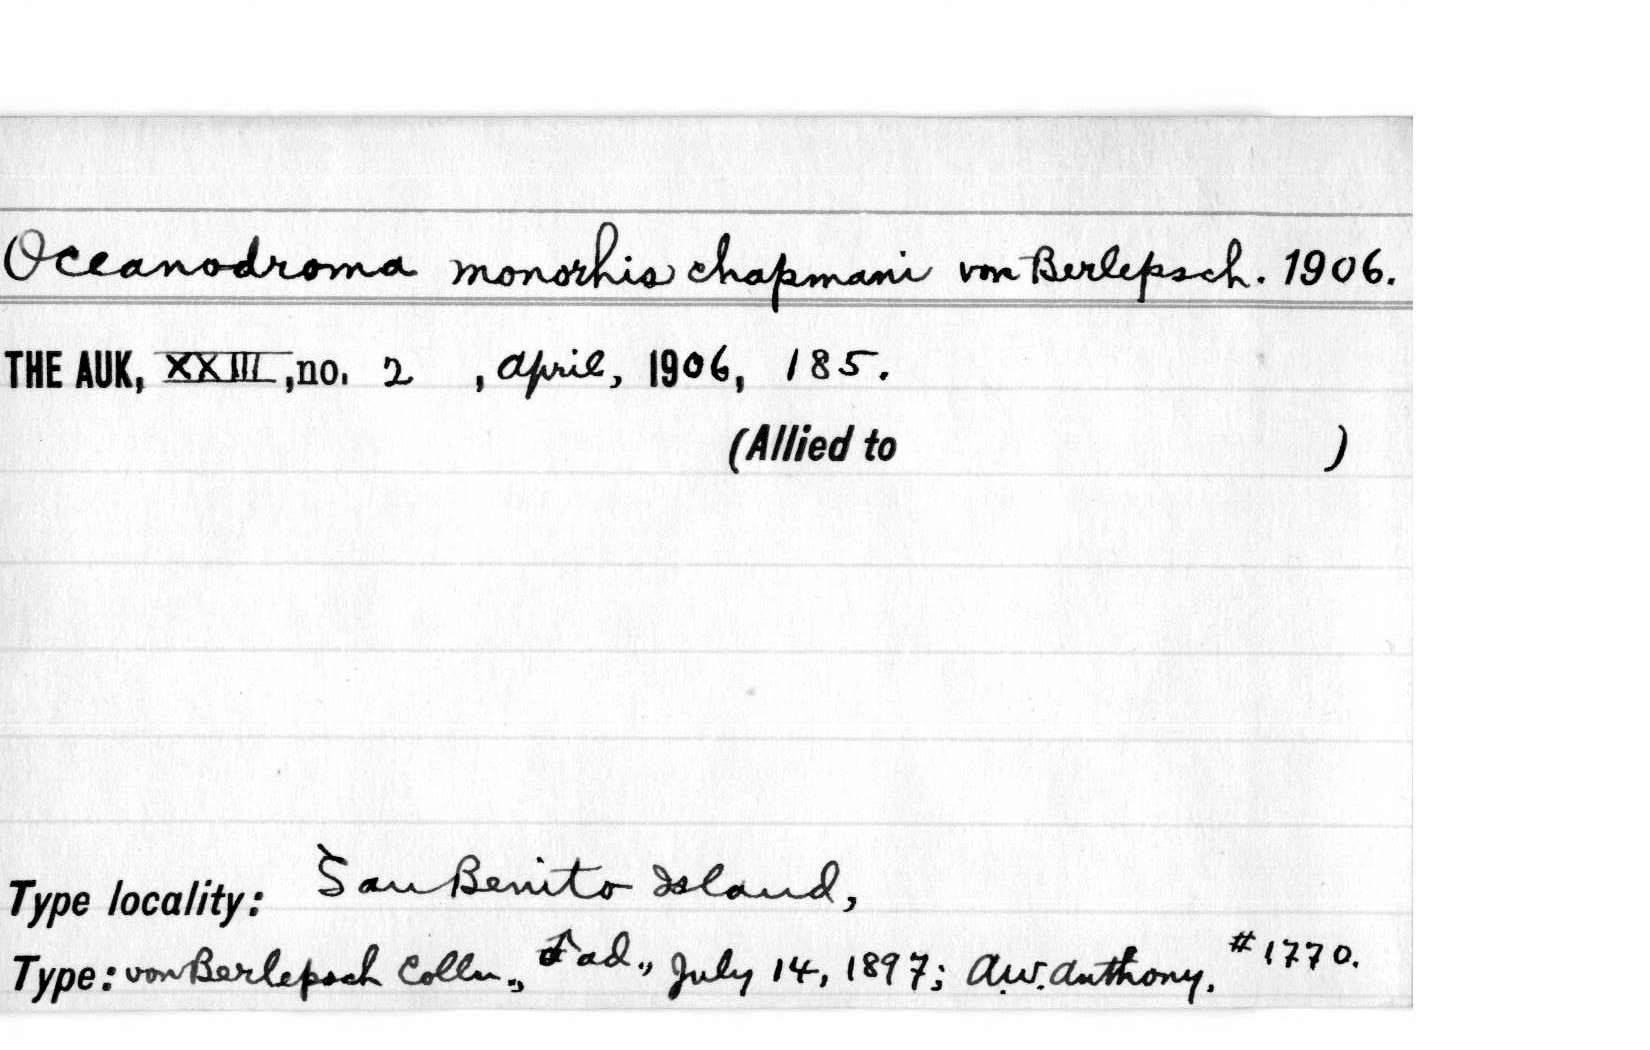 Oceanodroma monorhis chapmani von Berlepsch. 1906.
THE AUK, XXIII, no. 2, April, 1906, 185.
(Allied to )
Type locality: San Benito Island,
Type: von Berlepsch Colln., ♂ ad., July 14, 1897; A.W. Anthony, #1770.